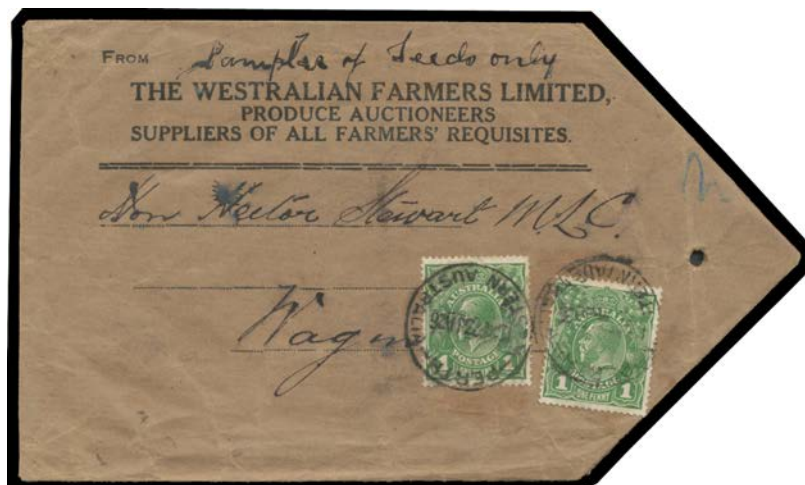 FROM Samples of Seeds only
THE WESTRALIAN FARMERS LIMITED,
PRODUCE AUCTIONEERS
SUPPLIERS OF ALL FARMERS' REQUISITES.
Hon Hector Stewart M.L.C.
Wagin
AUSTRALIA
POSTAGE
PERTH
AUSTRALIA
POSTAGE
1 1
ONE PENNY